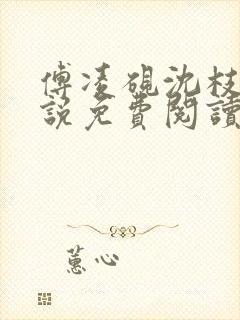 傅凌砚沈枝
說免費閱讀
蕙心